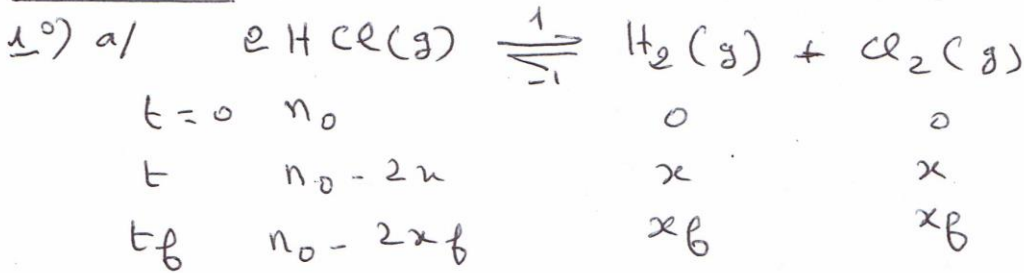 1°) a/ 2 HCl(g) ⇌ 1 -1 H2(g) + Cl2(g)
t = 0 n0 0 0
t n0 - 2x x x
tf n0 - 2xf xf xf